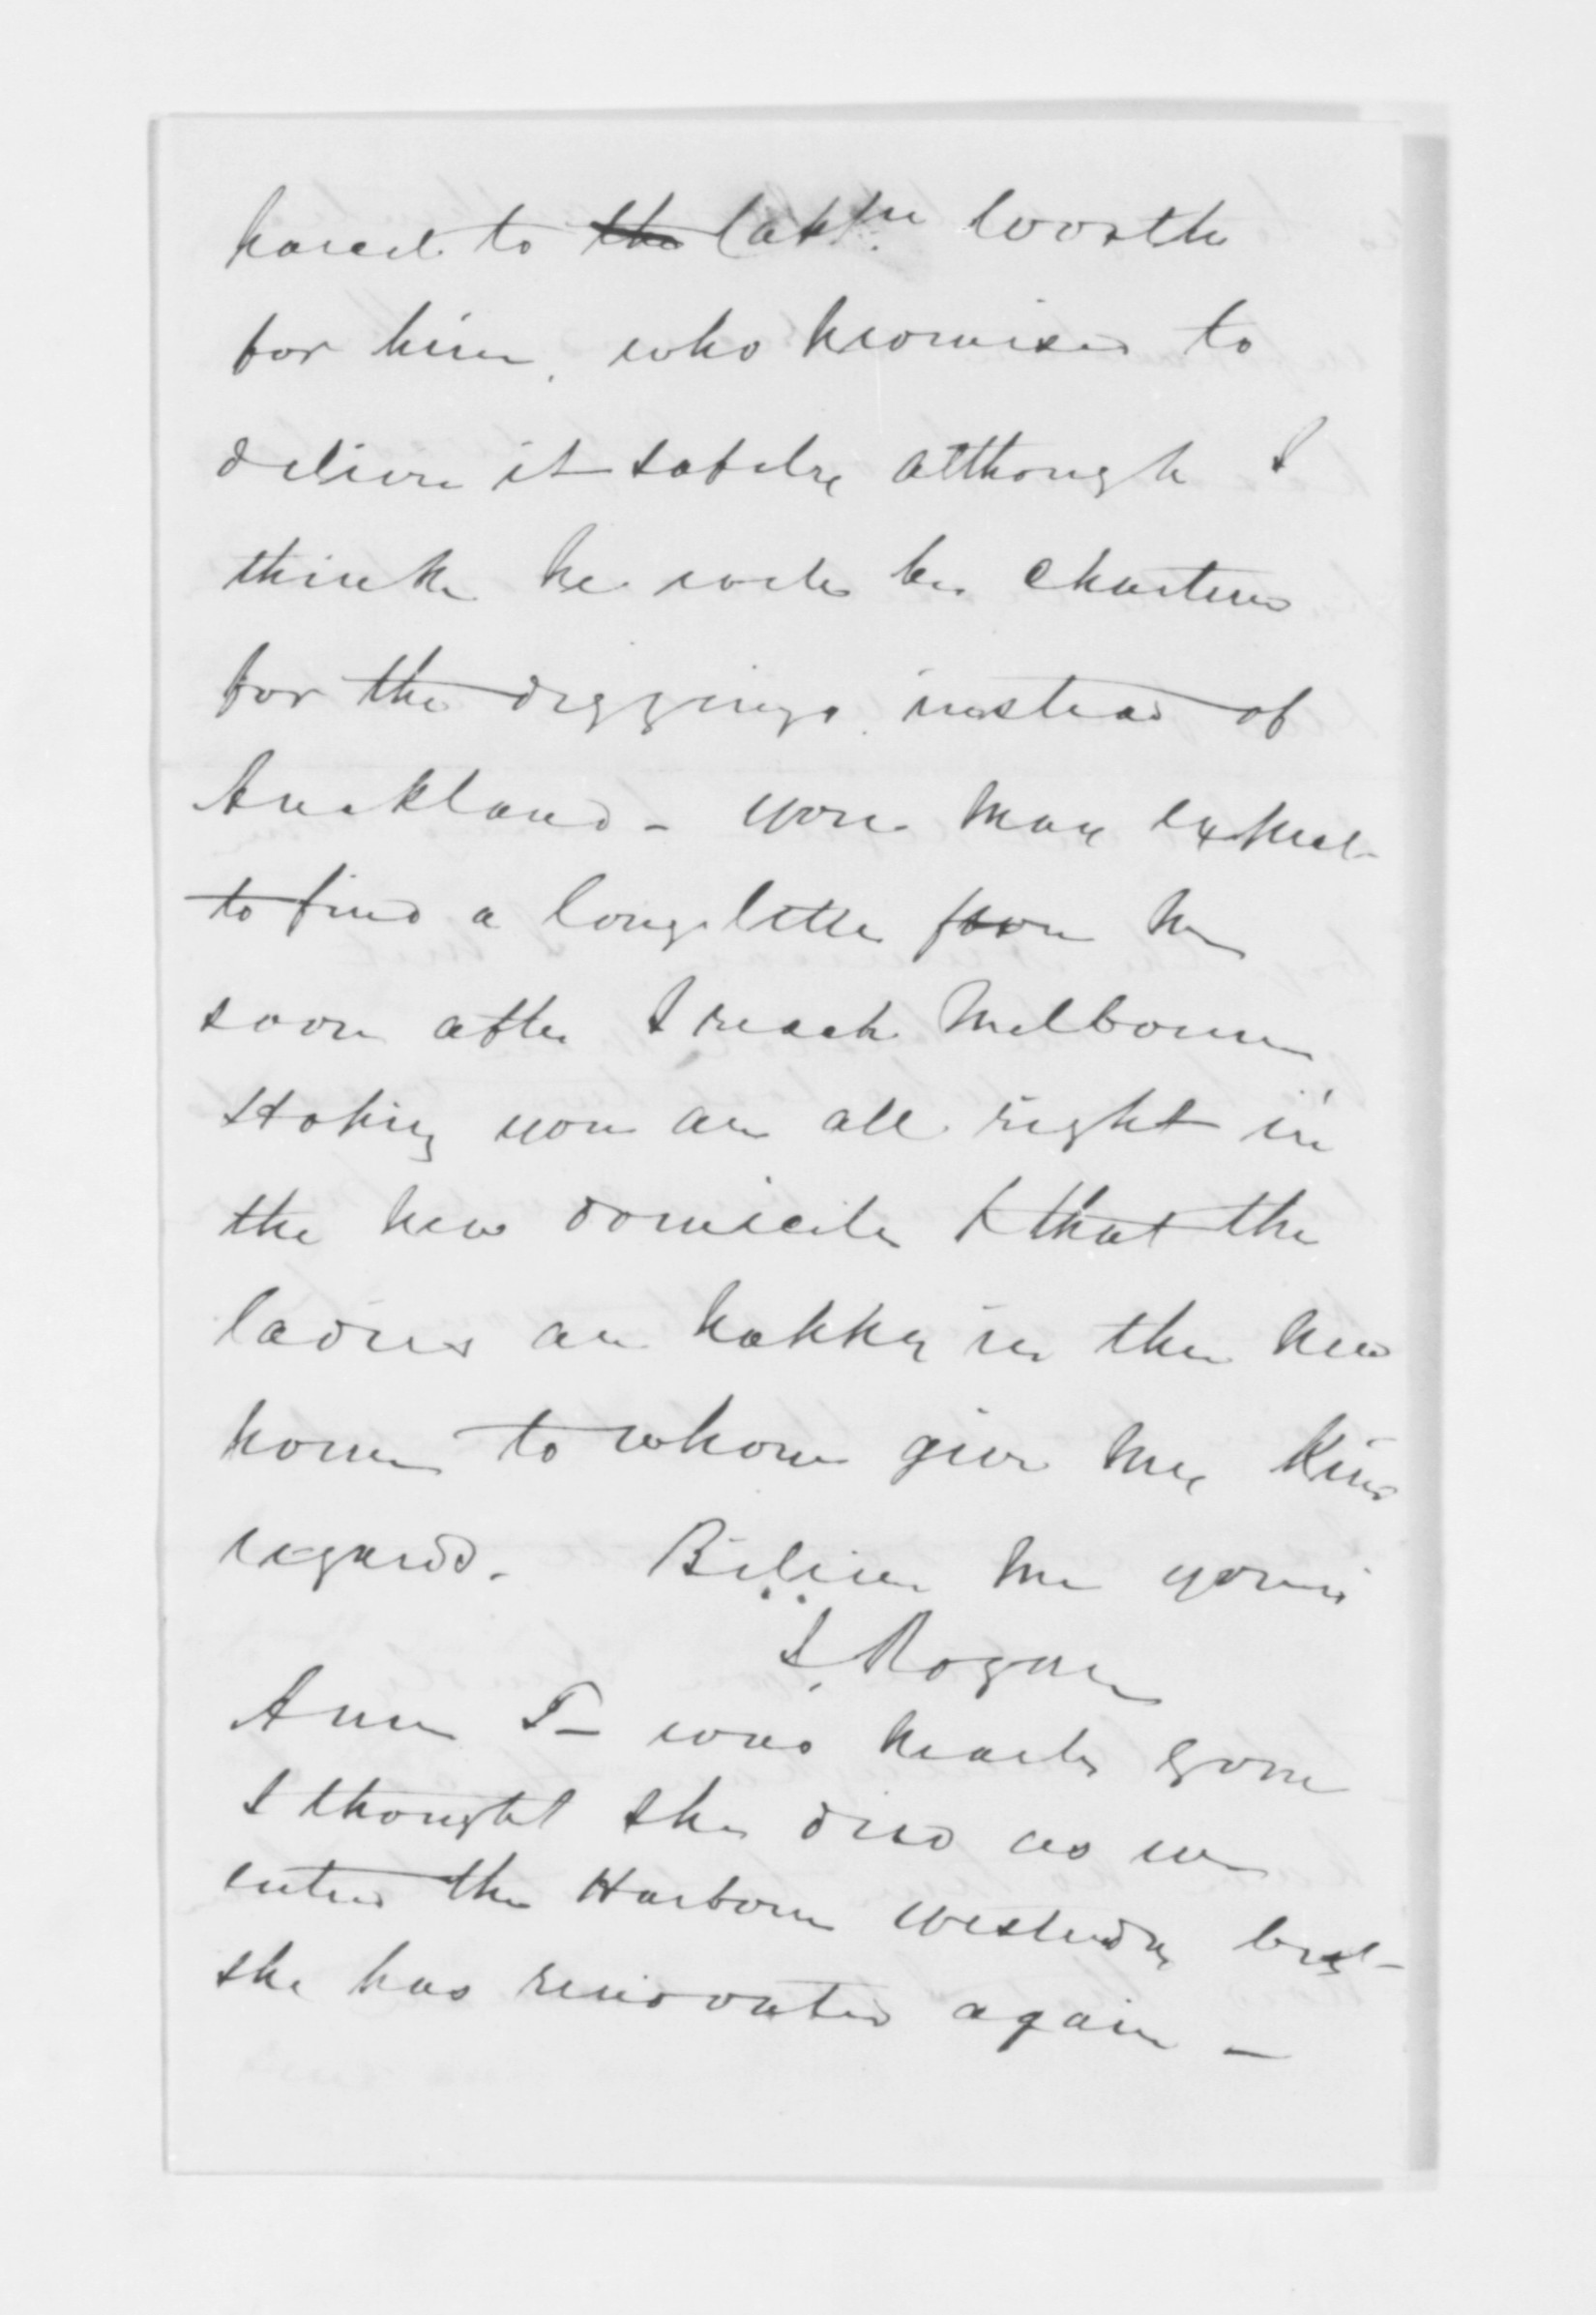 parcel to the Captn Worth
for him, who promises to
deliver it safely although I
think he will be chartered
for the diggings instead of
Auckland - you may expect
to find a long letter from me
soon after I reach Melbourne
Hoping you are all right in
the new domicile & that the
ladies are happy in their new
home to whom give my kind
regards. Believe me yours
J. Rogan
Ann T- was nearly gone
I thought she died as we
entered the Harbour yesterday but
she has renovated again -